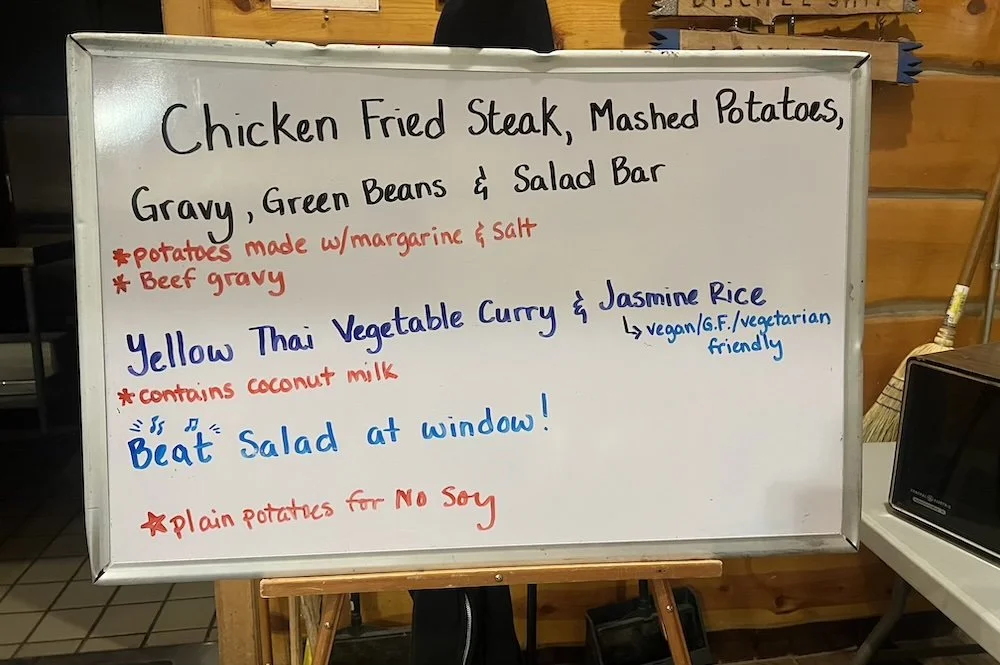 Chicken Fried Steak, Mashed Potatoes,
Gravy, Green Beans & Salad Bar
*potatoes made w/margarine & salt
* Beef gravy
Yellow Thai Vegetable Curry & Jasmine Rice
↳ vegan/G.F./vegetarian
friendly
*contains coconut milk
Beat Salad at window!
*plain potatoes for No Soy